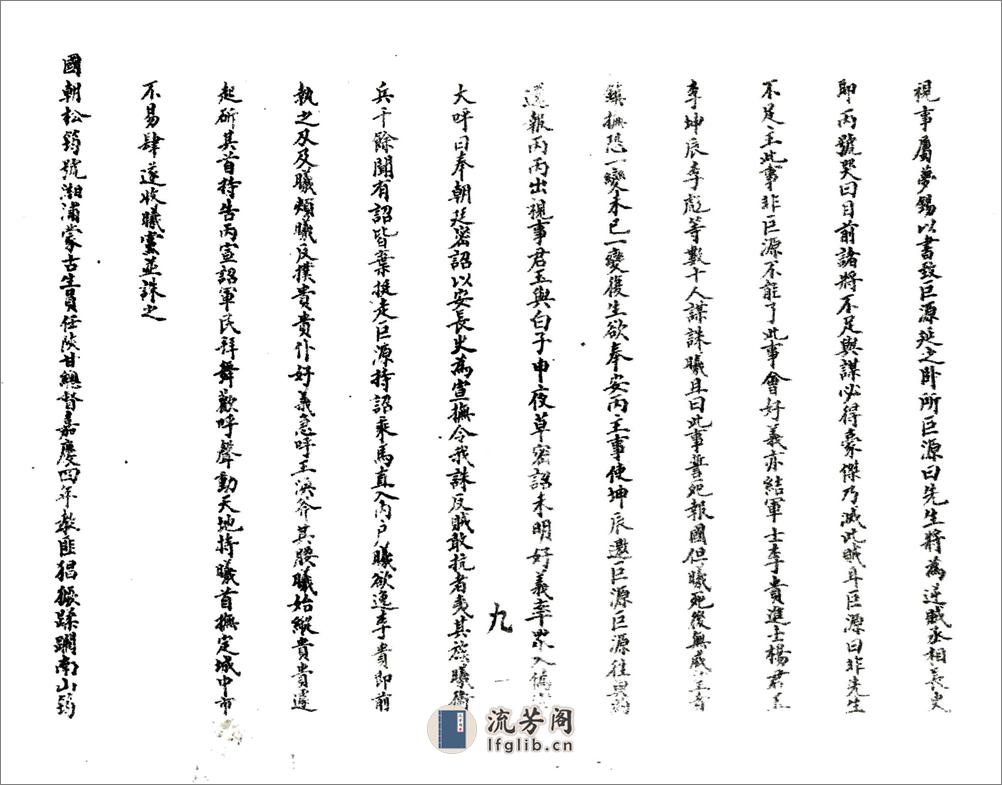 視事屬夢錫以書致巨源延之卧所巨源曰先生將為逆賊丞相長史
即丙號哭曰目前諸將不足與謀必得豪傑乃滅此賊耳巨源曰非先生
不足主此事非巨源不能了此事會好義亦結軍士李貴進士楊君玉
李坤辰李彪等數十人謀誅曦且曰此事誓死報國但曦死後無威
鎮撫恐一變未已一變復生欲奉安丙主事使坤辰邀巨源巨源往與
還報丙丙出視事君玉與白子申夜草密詔未明好義率眾入偽
大呼曰奉朝廷密詔以安長史為宣撫令我誅反賊敢抗者夷其族曦衛
兵千餘聞有詔皆棄挺走巨源持詔乘馬直入內戶曦欲逸李貴即前
執之刄及曦頰曦反撲貴貴仆好義急呼王渙斧其腰曦始縱貴貴遽
起斫其首持告丙宣詔軍民拜舞歡呼聲動天地持曦首撫定城中市
不易肆遂收曦黨並誅之
國朝松筠號湘浦蒙古生員任陝甘總督嘉慶四年教匪猖獗蹂躪南山筠
九
流芳阁
lfglib.cn